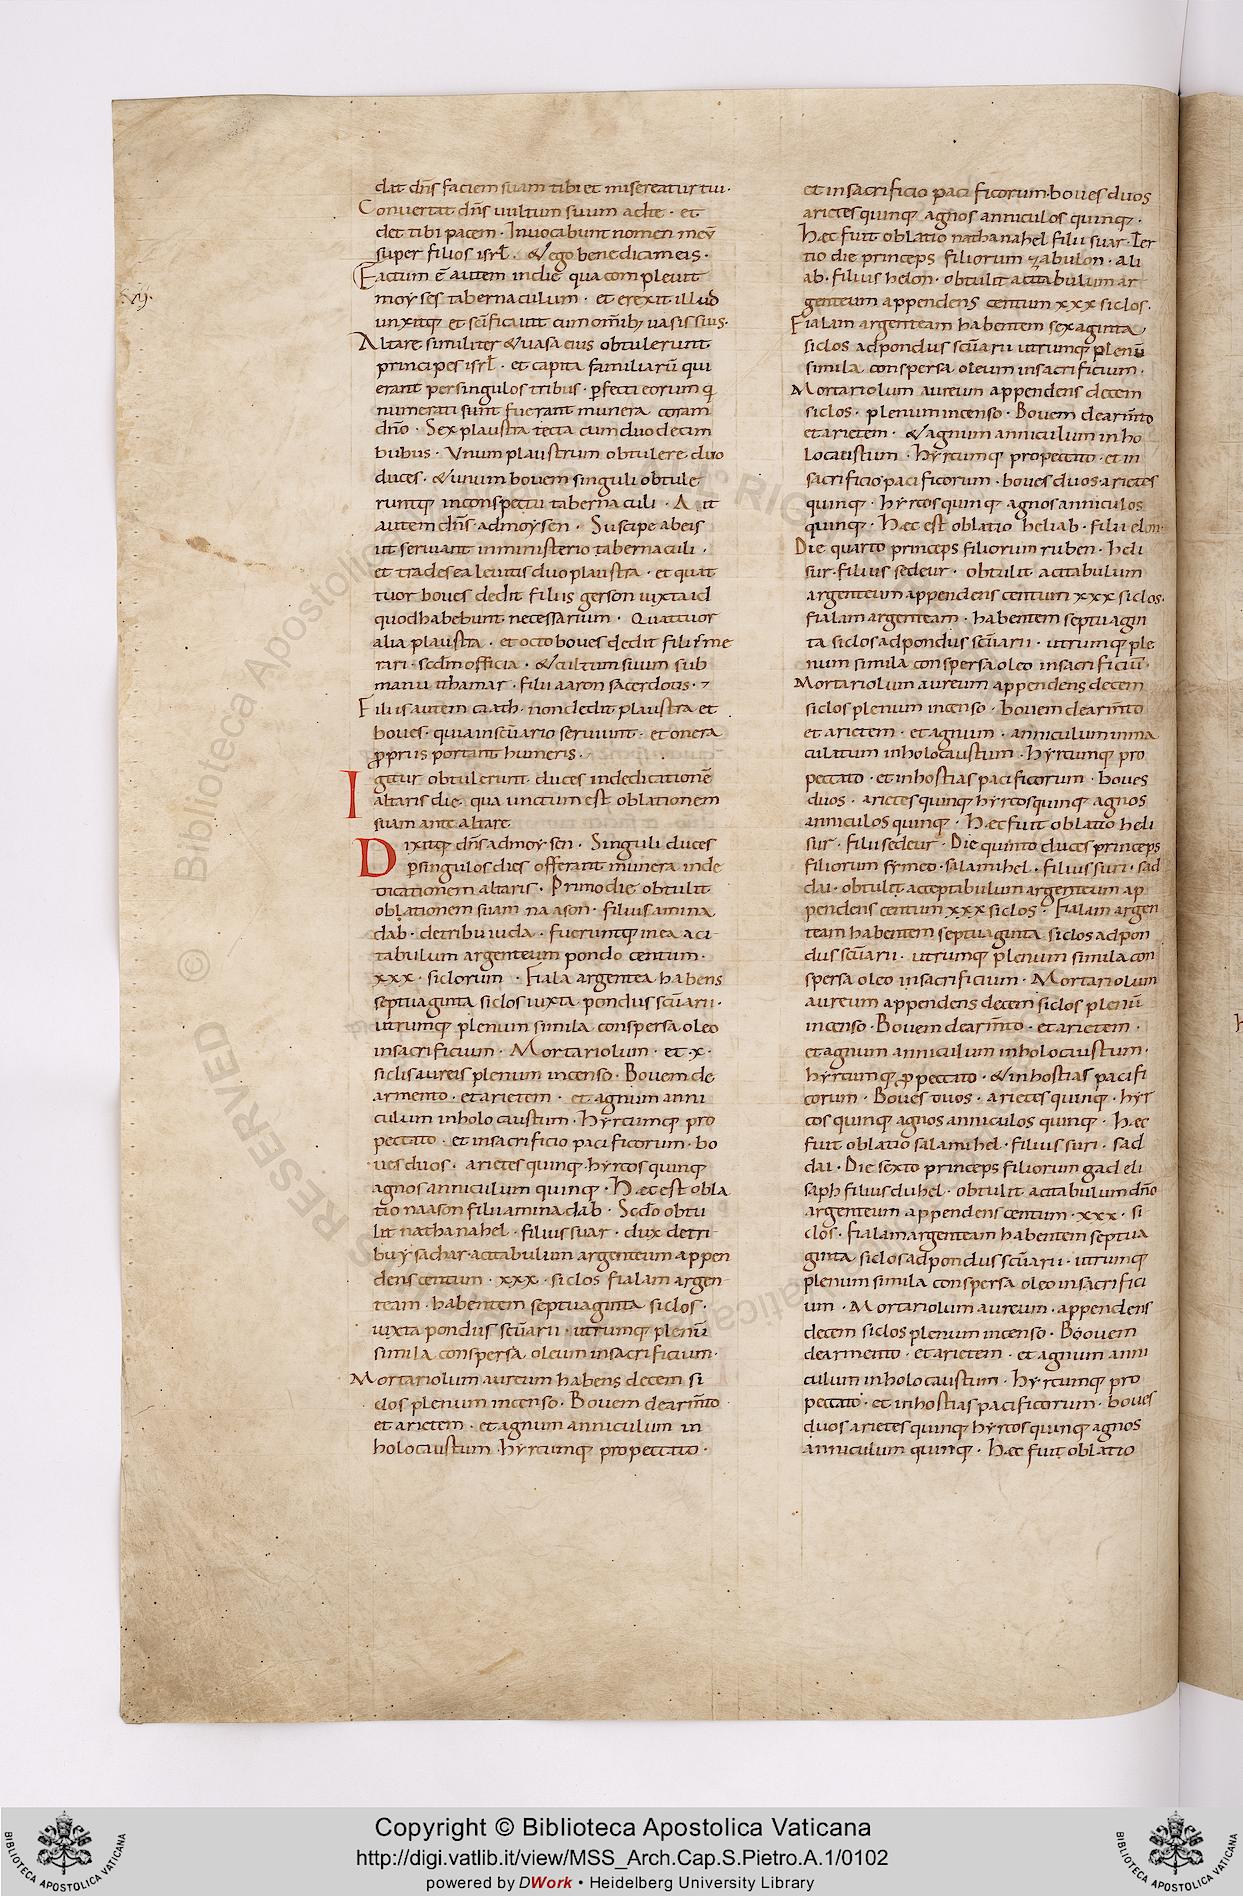 dat dñs faciem suam tibi et misereatur tui·
Convertat dñs vultum suum ad te· et
det tibi pacem· Invocabunt nomen meū
super filios isrl̄· & ego benedicam eis·
Factum ē autem in die qua complevit
moyses tabernaculum· et erexit illud
unxitq; et sc̄ificavit cum om̄ib; vasis suis·
Altare similiter & vasa eius obtulerunt
principes isrl̄· et capita familiarū qui
erant per singulos tribus· p̄fecti eorum q̄
numerati sunt fuerant munera coram
dño· Sex plaustra tecta cum duodecim
bubus· Unum plaustrum obtulere duo
duces· & unum bovem singuli obtule
runtq; in conspectu tabernaculi· Ait
autem dñs ad moysen· Suscipe ab eis
ut serviant in ministerio tabernaculi·
et trades ea levitis duo plaustra· et quat
tuor boves dedit filiis gerson iuxta id
quod habebunt necessarium· Quattuor
alia plaustra· et octo boves dedit filiis me
rari· scdm officia· & cultum suum sub
manu ithamar· filii aaron sacerdotis·
Filiis autem caath· non dedit plaustra et
boves· quia in scūario serviunt· et onera
ꝓpriis portant humeris·
Igitur obtulerunt duces in dedicationē
altaris die· qua unctum est oblationem
suam ante altare
Dixitq; dñs ad moysen· Singuli duces
ꝑ singulos dies offerant munera in de
dicationem altaris· Primo die obtulit
oblationem suam naason· filius amina
dab· de tribu iuda· fueruntq; in ea aci
tabulum argenteum pondo centum·
xxx· siclorum· Fiala argentea habens
septuaginta siclos iuxta pondus scūarii·
utrumq; plenum simila conspersa oleo
in sacrificium· Mortariolum· et x·
siclis aureis plenum incenso· Bovem de
armento· et arietem· et agnum anni
culum in holocaustum· hyrcumq; pro
peccato· et in sacrificio pacificorum· bo
ves duos· arietes quinq; hyrcos quinq;
agnos anniculum quinq;· Haec est obla
tio naason filii aminadab· Scdo obtu
lit nathanahel· filius suar· dux de tri
bu ysachar· acitabulum argenteum appen
dens centum· xxx· siclos fialam argen
team· habentem septuaginta siclos·
iuxta pondus scūarii· utrumq; plenū
simila conspersa oleum in sacrificium·
Mortariolum aureum habens decem si
clos plenum incenso· Bovem de arm̄to
et arietem· et agnum anniculum in
holocaustum hyrcumq; pro peccato·
et in sacrificio pacificorum· boves duos
arietes quinq; agnos anniculos quinq;·
Haec fuit oblatio nathanahel filii suar· Ter
tio die princeps filiorum zabulon· eli
ab· filius helon· obtulit acitabulum ar
genteum appendens centum xxx siclos·
Fialam argenteam habentem sexaginta
siclos ad pondus scūarii utrumq; plenū
simila conspersa oleum in sacrificium·
Mortariolum aureum appendens decem
siclos· plenum incenso· Bovem de arm̄to
et arietem· & agnum anniculum in ho
locaustum· hyrcumq; pro peccato· et in
sacrificio pacificorum· boves duos· arietes
quinq;· hyrcos quinq; agnos anniculos
quinq;· Haec est oblatio heliab· filii elon·
Die quarto princeps filiorum ruben· heli
sur· filius sedeur· obtulit acitabulum
argenteum appendens centum xxx siclos·
fialam argenteam· habentem septuagin
ta siclos ad pondus scūarii· utrumq; ple
num simila conspersa oleo in sacrificiū·
Mortariolum aureum appendens decem
siclos plenum incenso· bovem de arm̄to
et arietem· et agnum· anniculum inma
culatum in holocaustum· hyrcumq; pro
peccato· et in hostias pacificorum· boves
duos· arietes quinq; hyrcos quinq; agnos
anniculos quinq;· Haec fuit oblatio heli
sur· filii sedeur· Die quinto duces princeps
filiorum symeo· salamihel· filius suri· sad
dai· obtulit acceptabulum argenteum ap
pendens centum xxx siclos· Fialam argen
team habentem septuaginta siclos ad pon
dus scūarii· utrumq; plenum simila con
spersa oleo in sacrificium· Mortariolum
aureum appendens decem siclos plenū
incenso· Bovem de arm̄to· et arietem·
et agnum anniculum in holocaustum·
hyrcumq; ꝓ peccato· & in hostias pacifi
corum· Boves duos· arietes quinq;· hyr
cos quinq; agnos anniculos quinq;· Haec
fuit oblatio salamihel· filius suri· sad
dai· Die sexto princeps filiorum gad eli
saph filius duhel· obtulit acitabulum dño
argenteum appendens centum· xxx· si
clos· fialam argenteam habentem septua
ginta siclos ad pondus scūarii· utrumq;
plenum simila conspersa oleo in sacrifici
um· Mortariolum aureum· appendens
decem siclos plenum incenso· Boovem
de armento· et arietem· et agnum anni
culum in holocaustum· Hyrcumq; pro
peccato· et in hostias pacificorum· boves
duos arietes quinq; hyrcos quinq; agnos
anniculum quinq;· Haec fuit oblatio
Copyright © Biblioteca Apostolica Vaticana
http://digi.vatlib.it/view/MSS_Arch.Cap.S.Pietro.A.1/0102
powered by DWork • Heidelberg University Library